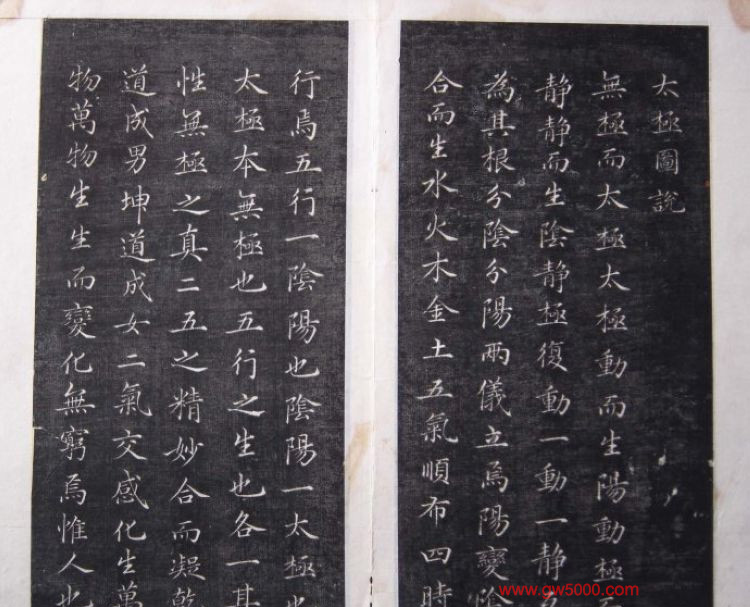 太極圖說
無極而太極太極動而生陽動極
静静而生陰静極復動一動一静
為其根分陰分陽兩儀立焉陽變
合而生水火木金土五氣順布四時
行焉五行一陰陽也陰陽一太極
太極本無極也五行之生也各一其
性無極之真二五之精妙合而凝乾
道成男坤道成女二氣交感化生萬
物萬物生生而變化無窮焉惟人也
www.gw5000.com